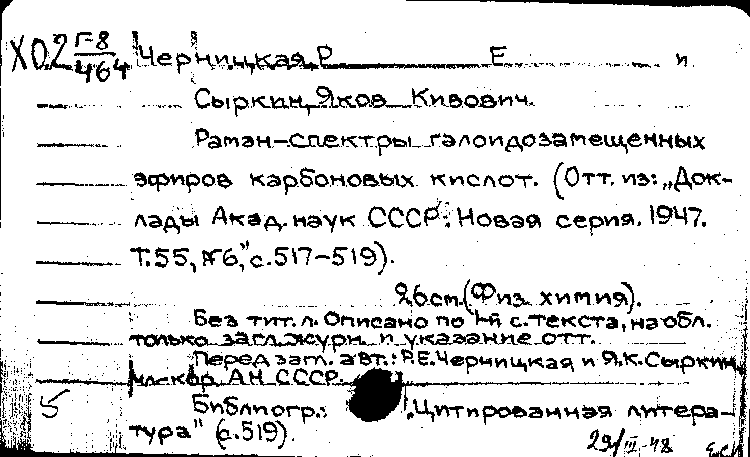 Х02 Г-8/464 Черницкая, Р Е и
Сыркин, Яков Кивович.
Раман-спектры галоидозамещенных
эфиров карбоновых кислот. (Отт. из: „Док-
лады Акад. наук СССР. Новая серия. 1947.
Т. 55, №6," с. 517-519).
26см. (Физ. химия).
Без тит. л. Описано по 1-й с. текста, на обл.
только загл. журн. и указание отт.
Перед загл. авт.: Р.Е. Черницкая и Я.К. Сыркин,
член-кор. АН СССР.
5 Библиогр.: „Цитированная литера-
тура" (с. 519).
29/III-48